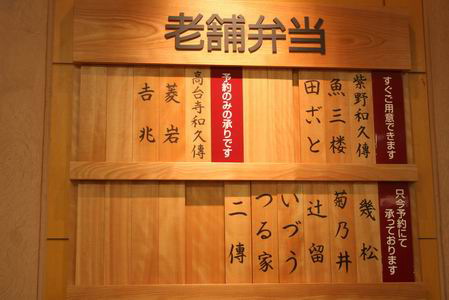 老舗弁当
すぐご用意できます
紫野和久傳
魚三楼
田ごと
予約のみの承りです
高台寺和久傳
菱岩
吉兆
只今予約にて
承っております
幾松
菊乃井
辻留
いづう
つる家
二傳